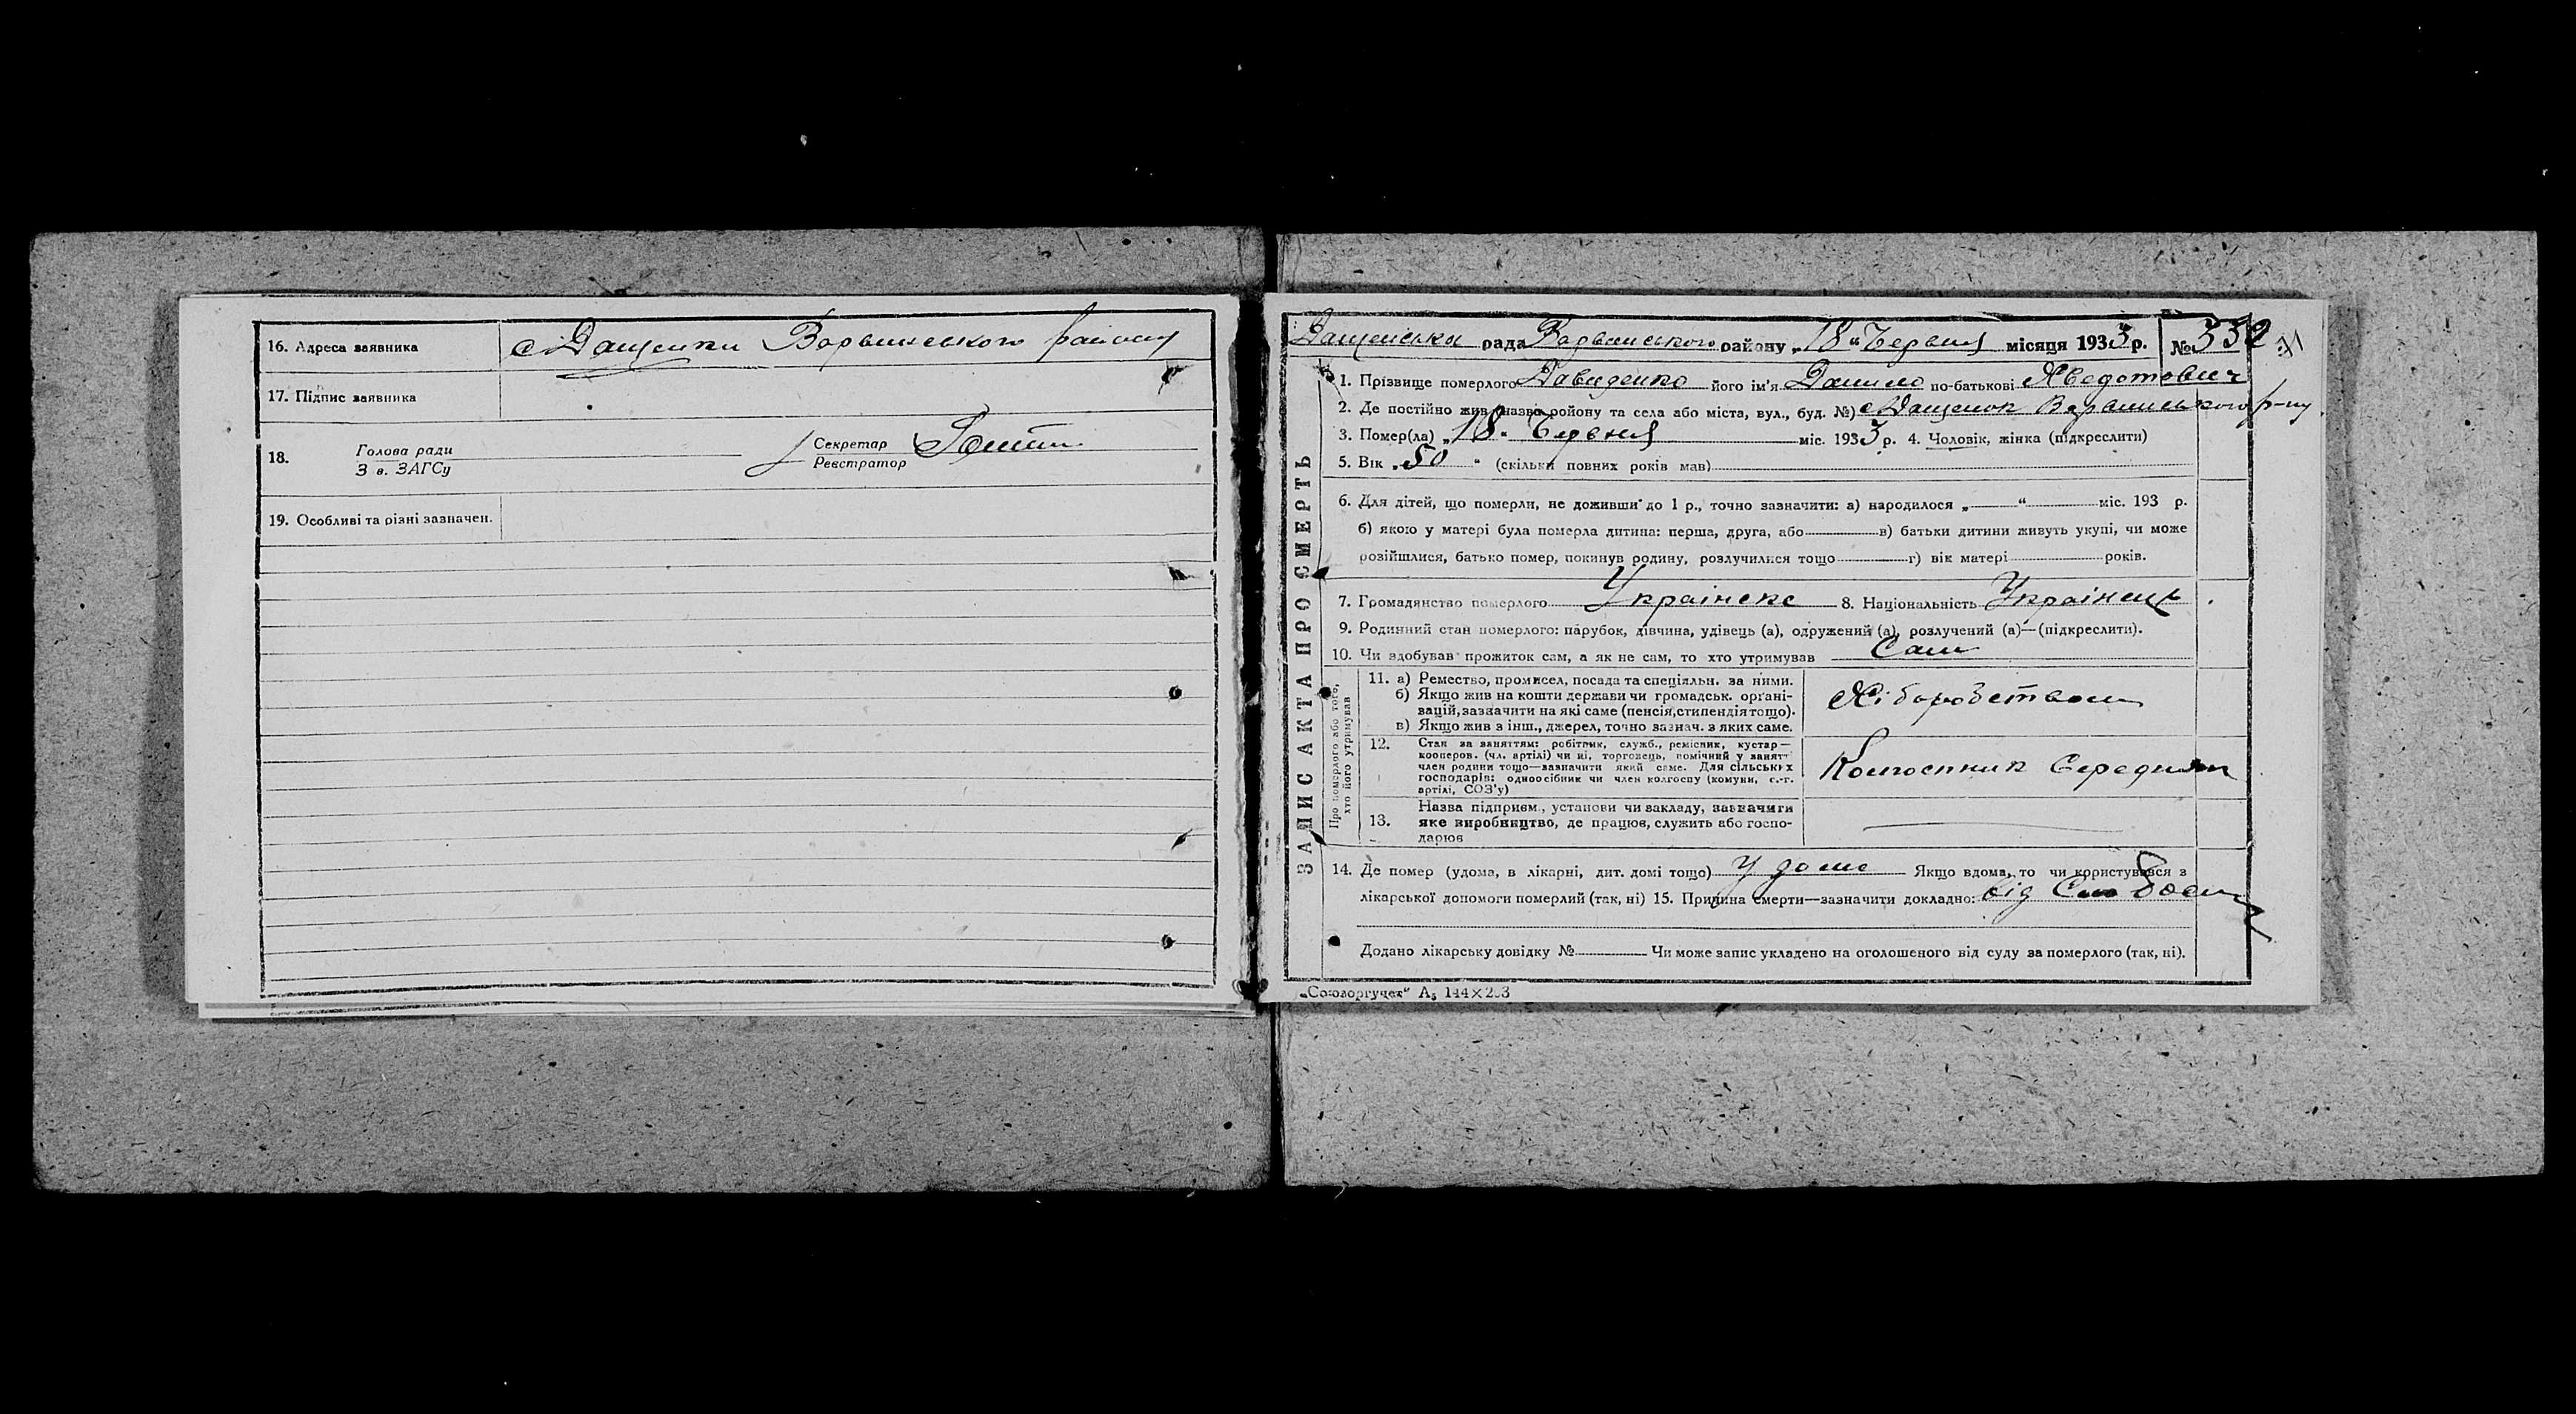 16. Адреса заявника с Дащенки Варвинського району
17. Підпис заявника
18. Голова ради Секретар
З в. ЗАГСу Реєстратор
19. Особливі та різні зазначен.
ЗАПИС АКТА ПРО СМЕРТЬ
Дащенська рада Варвинського району „18" Червня місяця 1933 р. № 332
1. Прізвище померлого Давиденко його ім'я Данило по-батькові Явдотович
2. Де постійно жив (назва району та села або міста, вул., буд. №) с Дащенок Варвинського р-ну
3. Помер(ла) „18" Червня міс. 1933 р. 4. Чоловік, жінка (підкреслити)
5. Вік „50" (скільки повних років мав)
6. Для дітей, що померли, не доживши до 1 р., точно зазначити: а) народилося „ " міс. 193 р.
б) якою у матері була померла дитина: перша, друга, або в) батьки дитини живуть укупі, чи може
розійшлися, батько помер, покинув родину, розлучилися тощо г) вік матері років.
7. Громадянство померлого Українске 8. Національність Українець
9. Родинний стан померлого: парубок, дівчина, удівець (а), одружений (а), розлучений (а)—(підкреслити).
10. Чи здобував прожиток сам, а як не сам, то хто утримував Сам
Про померлого або того, хто його утримував
11. а) Ремество, промисел, посада та спеціяльн. за ними.
б) Якщо жив на кошти держави чи громадськ. орґані-
зацій, зазначити на які саме (пенсія, стипендія тощо).
в) Якщо жив з інш., джерел, точно зазнач. з яких саме.
Хліборобством
12. Стан за заняттям: робітник, служб., ремісник, кустар—
кооперов. (чл. артілі) чи ні, торговець, помічний у занят
член родини тощо—зазначити який саме. Для сільських
господарів: одноосібник чи член колгоспу (комуни, с.-г.
артілі, СОЗ'у)
Колгоспник Середняк
13. Назва підприєм., установи чи закладу, зазначити
яке виробництво, де працює, служить або госпо-
дарює
14. Де помер (удома, в лікарні, дит. домі тощо) У доме Якщо вдома, то чи користувався з
лікарської допомоги померлий (так, ні) 15. Причина смерти—зазначити докладно: від
Додано лікарську довідку № Чи може запис укладено на оголошеного від суду за померлого (так, ні).
„Союзоргучет" А₅ 144×203